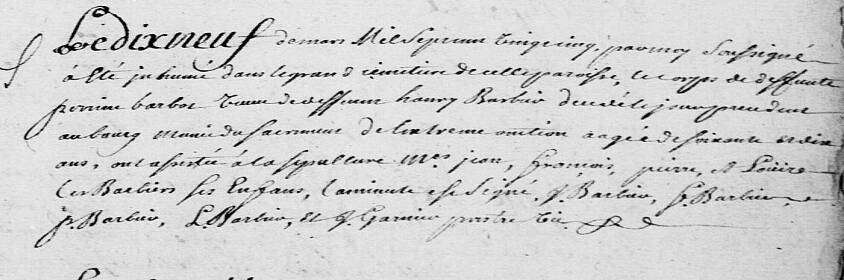 Le dix neuf de mars Mil Sept cent vingt cinq, par moy Soussigné
a été jnhumé dans le grand cimetiere de cette paroisse, le corps de deffunte
perrine barbot veuve de deffunt henry Barbier decedée le jour precedent
au bourg munie du sacrement de l'extreme onction aagée de soixante et dix
ans, ont assisté á la sepulture Mes jean, François, pierre, et Loüise
les Barbiers ses Enfans, la minute est Signé, J. Barbier, F. Barbier,
p. Barbier, L. Barbier, et J. Garnier prestre vic.